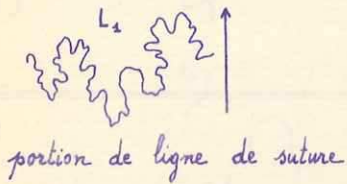 L1
portion de ligne de suture